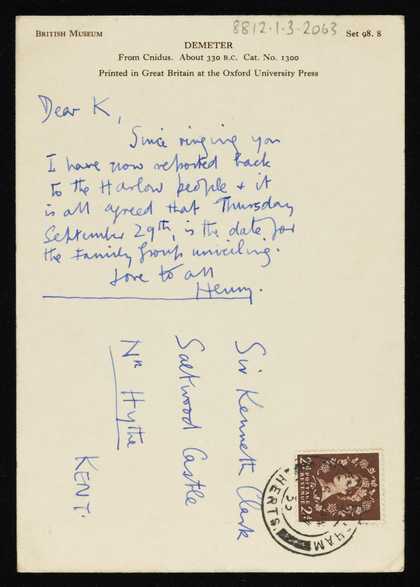 8812-1-3-2063
BRITISH MUSEUM
Set 98. 8
DEMETER
From Cnidus. About 330 B.C. Cat. No. 1300
Printed in Great Britain at the Oxford University Press
Dear K,
Since ringing you
I have now reported back
to the Harlow people & it
is all agreed that Thursday
September 29th, is the date for
the Family Group unveiling.
Love to all
Henry.
Sir Kenneth Clark
Saltwood Castle
Nr Hythe
KENT.
HAM
HERTS
POSTAGE
REVENUE
2½D
2½D